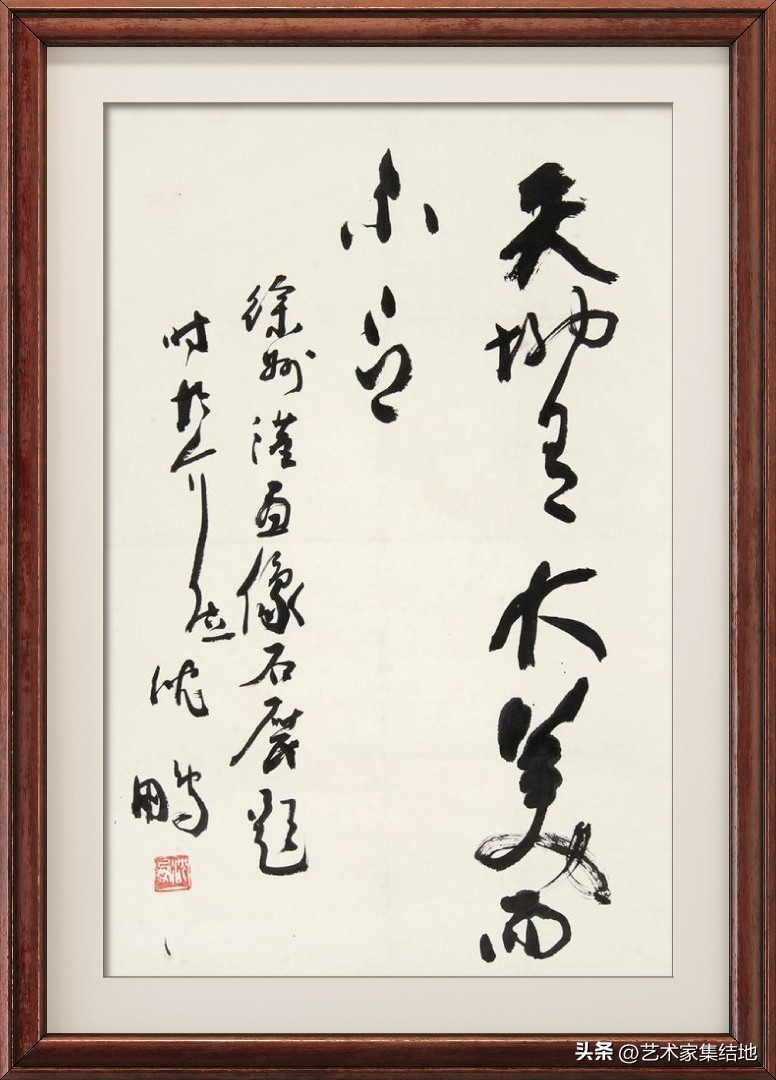 天地有大美而
不言
徐州漢画像石展題
时於介居沈鵬
头条 @艺术家集结地